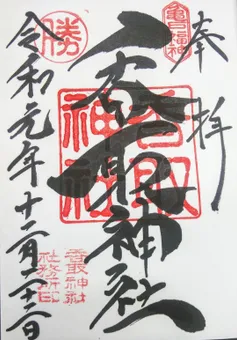 奉拝
亀戸福神
香取神社
香取
神社
勝
令和元年十二月二十二日
香取神社
社務所印